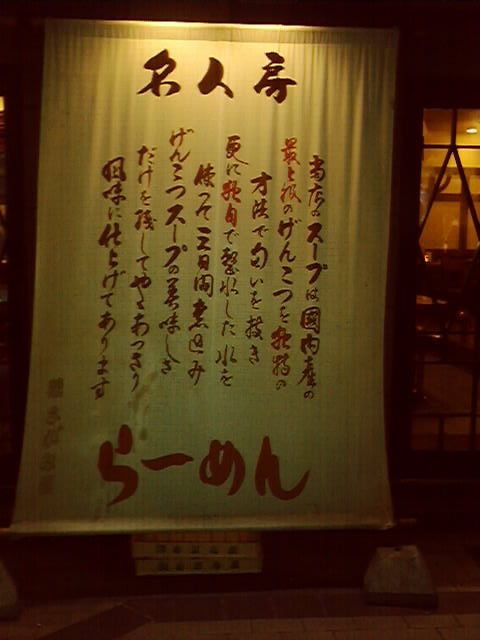 名人房
当店のスープは国内産の
最上級のげんこつを独特の
方法で匂いを抜き
更に独自で整水した水を
使って三日間煮込み
げんこつスープの美味しさ
だけを残してややあっさり
風味に仕上げてあります
らーめん